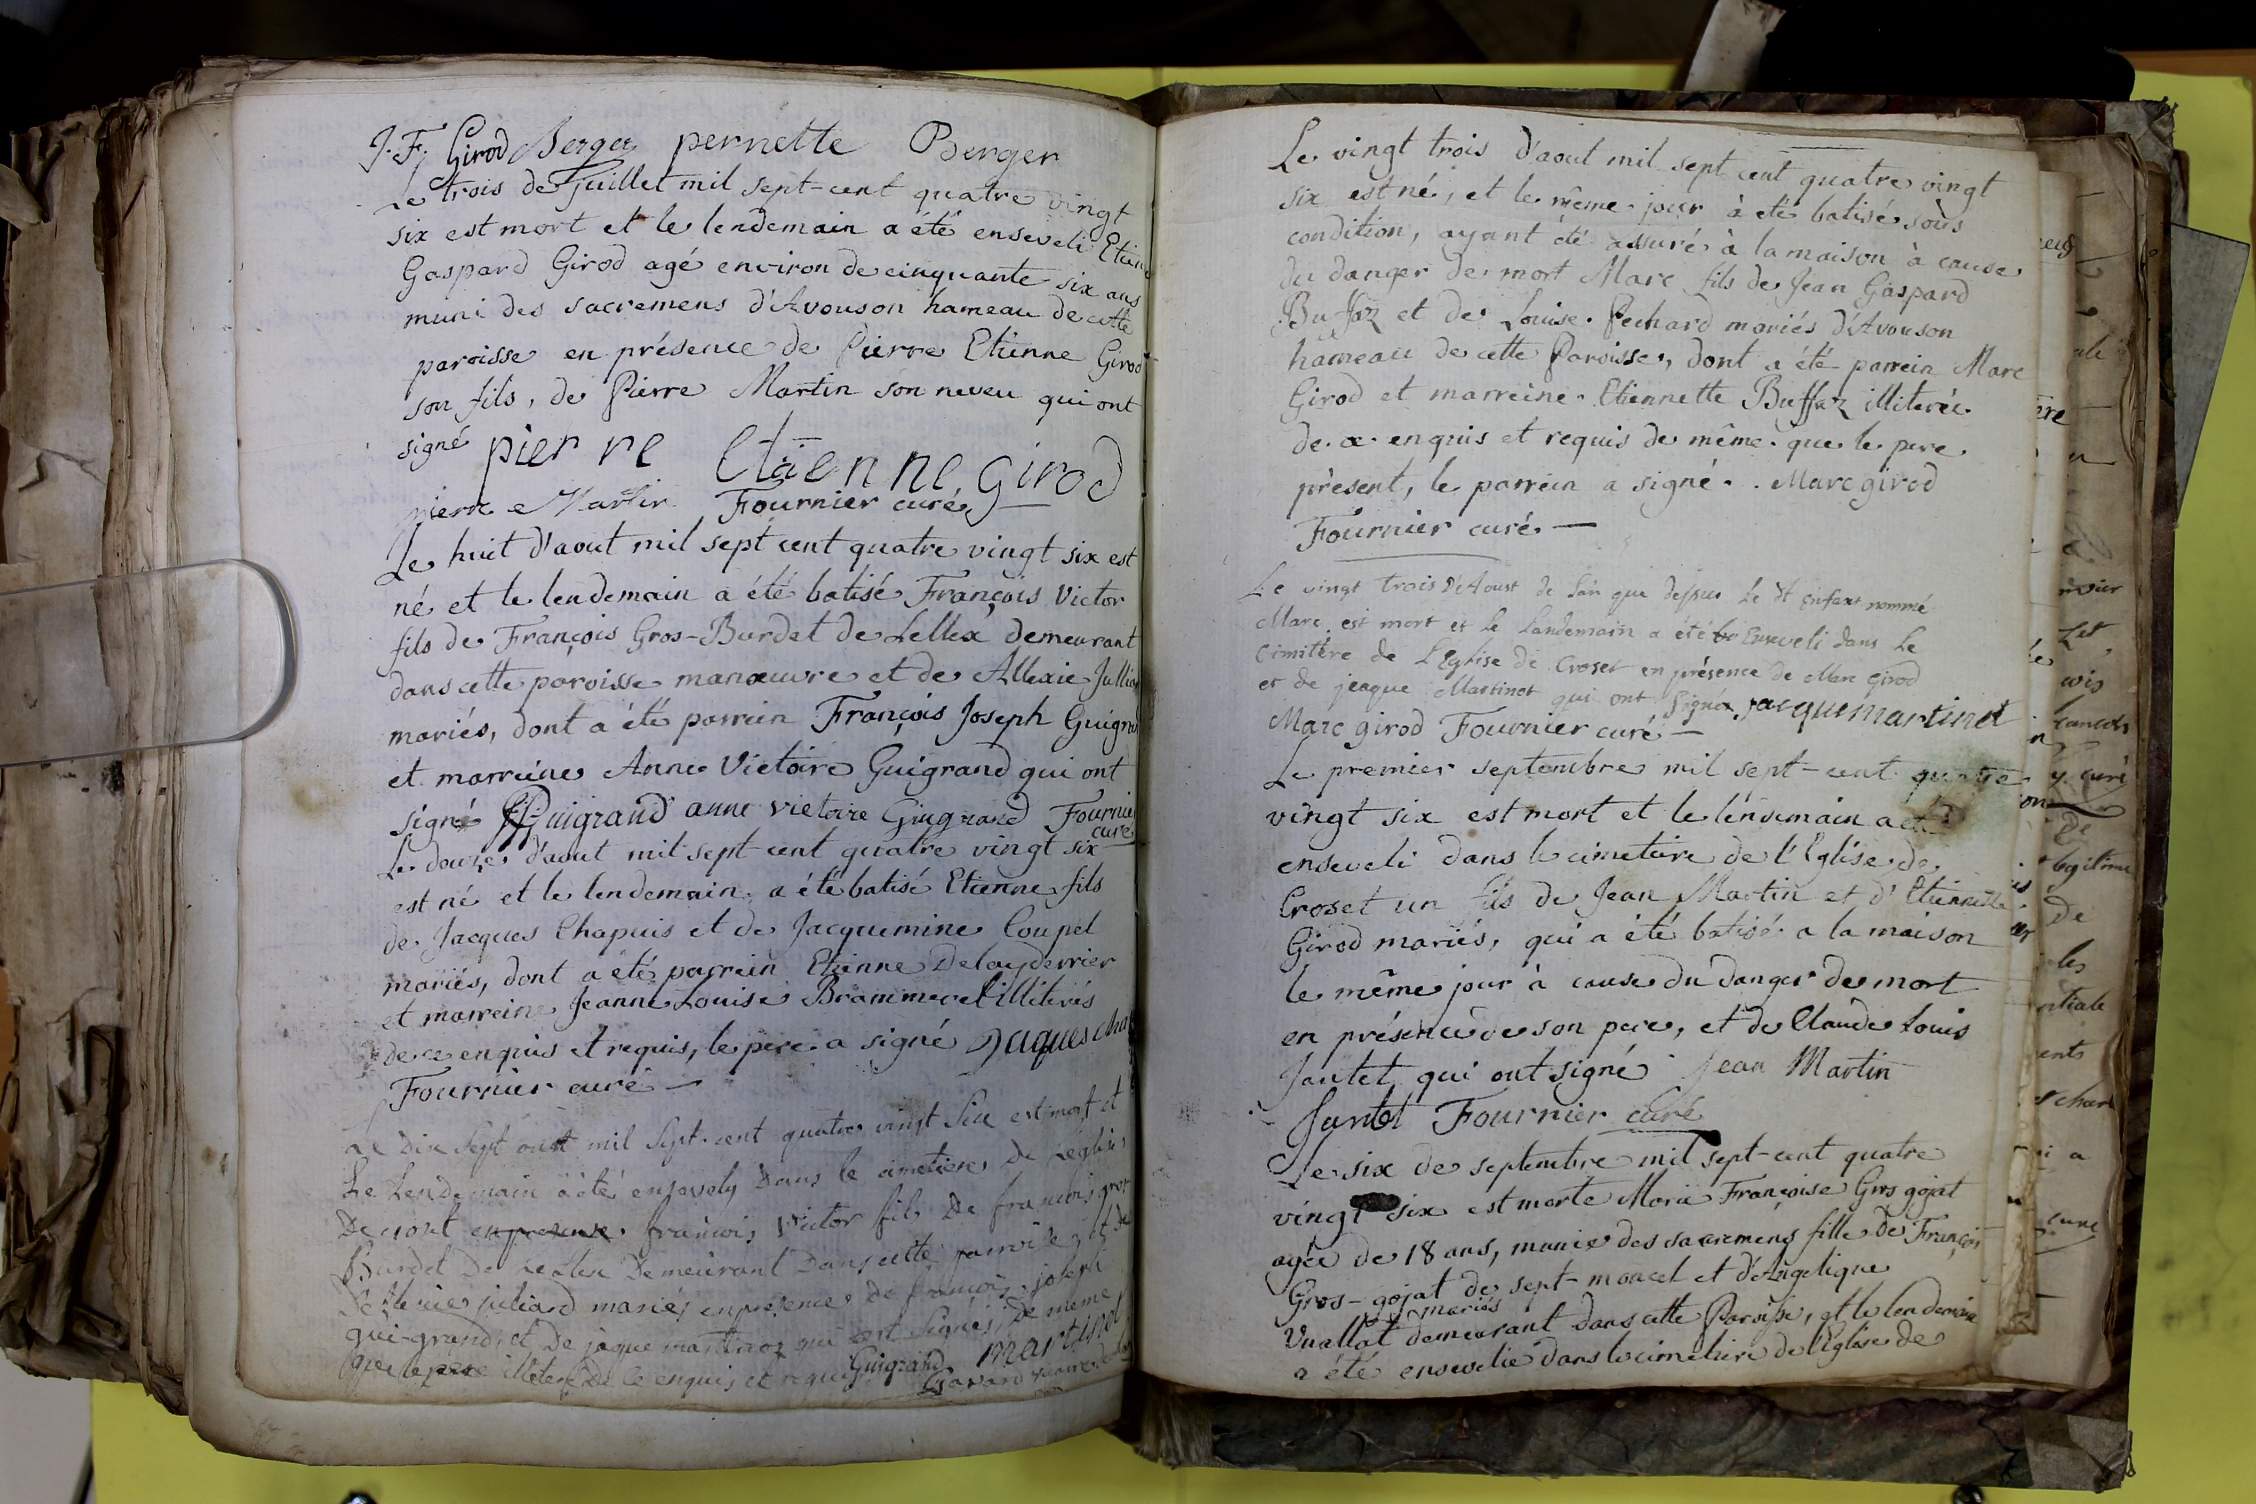 J. F. Girod Berger pernette Berger
Le trois de Juillet mil sept-cent quatre vingt
six est mort et le lendemain a été enseveli Etienne
Gaspard Girod agé environ de cinquante six ans
muni des sacremens d'Avouson hameau de cette
paroisse en présence de Pierre Etienne Girod
son fils, de Pierre Martin son neveu qui ont
signé pierre Etienne Girod
pierre Martin Fournier curé
Le huit d'aout mil sept cent quatre vingt six est
né et le lendemain a été batisé François Victor
fils de François Gros-Burdet de Lellex demeurant
dans cette paroisse manœuvre et de Allexie Jullia
mariés, dont a été parrein François Joseph Guigra
et marreine Anne Victoire Guigrand qui ont
signé Guigrand anne victoire Guigrand Fournier
curé
Le douze d'aout mil sept cent quatre vingt six
est né et le lendemain a été batisé Etienne fils
de Jacques Chapuis et de Jacquemine Coupel
mariés, dont a été parrein Etienne Delayderrier
et marreine Jeanne Louise illiterés
de ce enquis et requis, le pere a signé Jaques cha
Fournier curé
Le Dix Sept out mil Sept-cent quatre vingt Six est mort et
Le Lendemain a été ensevely Dans le cimetiere De L'eglise
De francois Victor fils De francois gros
Burdet De Lellex Demeurant Dans cette paroise et de
juliard mariés en presence de francois joseph
gui-grand et De jaque qui ont Signés, De meme
que le pere illeteré De ce enquis et requis Guigrand martinot
Gavard vicaire
Le vingt trois d'aout mil sept cent quatre vingt
six est né, et le même jour à été batisé sous
condition, ayant été assuré à la maison à cause
du danger de mort Marc fils de Jean Gaspard
Buffaz et de Louise Pechard mariés d'Avouson
hameau de cette Paroisse, dont a été parrein Marc
Girod et marreine Etiennette Buffaz illiterée
de ce enquis et requis de même que le pere
présent, le parrein a signé. Marc girod
Fournier curé
Le vingt trois D'Aoust de L'an que dessus Le dt Enfant nommé
Marc est mort et Le Landemain a été Enseveli dans Le
Cimitère de L'Eglise de Croset en présence de Marc Girod
et de jeaque Martinot qui ont Signés jacque martinet
Marc girod Fournier curé
Le premier septembre mil sept-cent quatre
vingt six est mort et le lendemain a été
enseveli dans le cimetiere de l'Eglise de
Croset un fils de Jean Martin et d'Etiennette
Girod mariés, qui a été batisé a la maison
le même jour à cause du danger de mort
en présence de son pere, et de Claude Louis
Jantet qui ont signé Jean Martin
Jantet Fournier curé
Le six de septembre mil sept-cent quatre
vingt six est morte Marie Françoise Gros gojat
agée de 18 ans, munie des sacremens fille de François
Gros-gojat de sept-moncel et d'Angelique
mariés
Vuallat demeurant dans cette Paroisse, et le lendemain
a été ensevelie dans le cimetiere de l'Eglise de